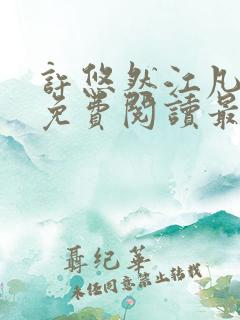 許悠然江凡
免費閱讀最
聶紀華
未經同意禁止轉載